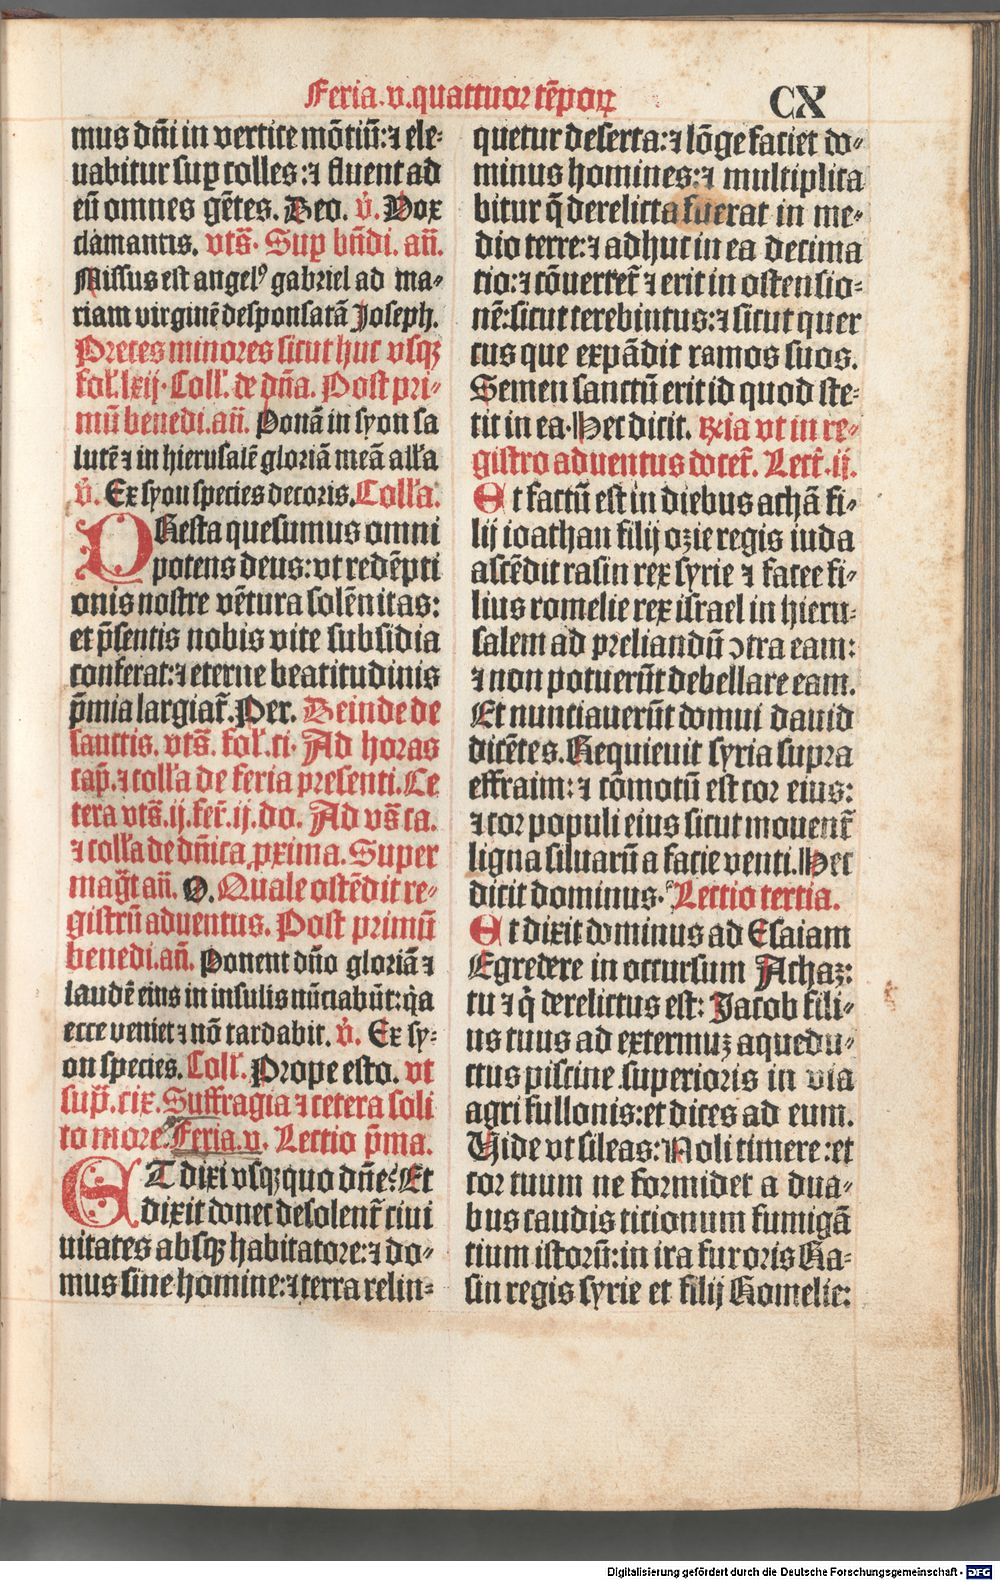 Feria.v.quattuor tēpoꝝ
CX
mus dn̄i in vertice mōtiū:⁊ ele-
uabitur suꝑ colles:⁊ fluent ad
eū omnes gētes. Deo. v̄. Vox
clamantis. vts̄. Suꝑ bn̄di. an̄.
Missus est angelꝰ gabriel ad ma-
riam virginē desponsatā Joseph.
Preces minores sicut huc vsqꝫ
fol̄.lxij. Coll̄. de dn̄a. Post pri-
mū benedi.an̄. Ponā in syon sa
lutē ⁊ in hierusalē gloriā meā all̄a
v̄. Ex syon species decoris.Coll̄a.
PResta quesumus omni
potens deus:vt redēpti
onis nostre vētura solēnitas:
et p̄sentis nobis vite subsidia
conferat:⁊ eterne beatitudinis
p̄mia largiat̄.Per. Deinde de
sanctis. vts̄. fol̄.ci. Ad horas
cap̄.⁊ coll̄a de feria presenti.Ce
tera vts̄.ij.fer̄.ij.do. Ad vs̄ ca.
⁊ coll̄a de dn̄ica ꝓxima. Super
mag̅t an̄. O. Quale ostēdit re-
gistrū aduentus. Post primū
benedi.an̄. Ponent dn̄o gloriā ⁊
laudē eius in insulis nūciabūt:q̇a
ecce veniet ⁊ nō tardabit. v̄. Ex sy-
on species. Coll̄. Prope esto. vt
sup̄.cix. Suffragia ⁊ cetera soli
to more. Feria.v. Lectio p̄ma.
ET dixi vsqꝫquo dn̄e? Et
dixit donec desolent̄ ciui
uitates absqꝫ habitatore:⁊ do-
mus sine homine:⁊ terra relin-
quetur deserta:⁊ lōge faciet do-
minus homines:⁊ multiplica
bitur q̄ derelicta fuerat in me-
dio terre:⁊ adhuc in ea decima
tio:⁊ cōuertet̄ ⁊ erit in ostensio-
nē:sicut terebintus:⁊ sicut quer
cus que expādit ramos suos.
Semen sanctū erit id quod ste-
tit in ea. Hec dicit. ꝶia vt in re-
gistro aduentus docet̄. Lect̄.ij.
Et factū est in diebus achā fi-
lij ioathan filij ozie regis iuda
ascēdit rasin rex syrie ⁊ facee fi-
lius romelie rex israel in hieru-
salem ad preliandū ↄtra eam:
⁊ non potuerūt debellare eam.
Et nunciauerūt domui dauid
dicētes. Requieuit syria supra
effraim: ⁊ cōmotū est cor eius:
⁊ cor populi eius sicut mouent̄
ligna siluarū a facie venti. Hec
dicit dominus. Lectio tertia.
Et dixit dominus ad Esaiam
Egredere in occursum Achaz:
tu ⁊ q̇ derelictus est: Jacob fili-
us tuus ad extermuꝫ aquedu-
ctus piscine superioris in via
agri fullonis:et dices ad eum.
Vide vt sileas:Noli timere:et
cor tuum ne formidet a dua-
bus caudis ticionum fumigā
tium istorū:in ira furoris Ra-
sin regis syrie et filij Romelie:
Digitalisierung gefördert durch die Deutsche Forschungsgemeinschaft - DFG